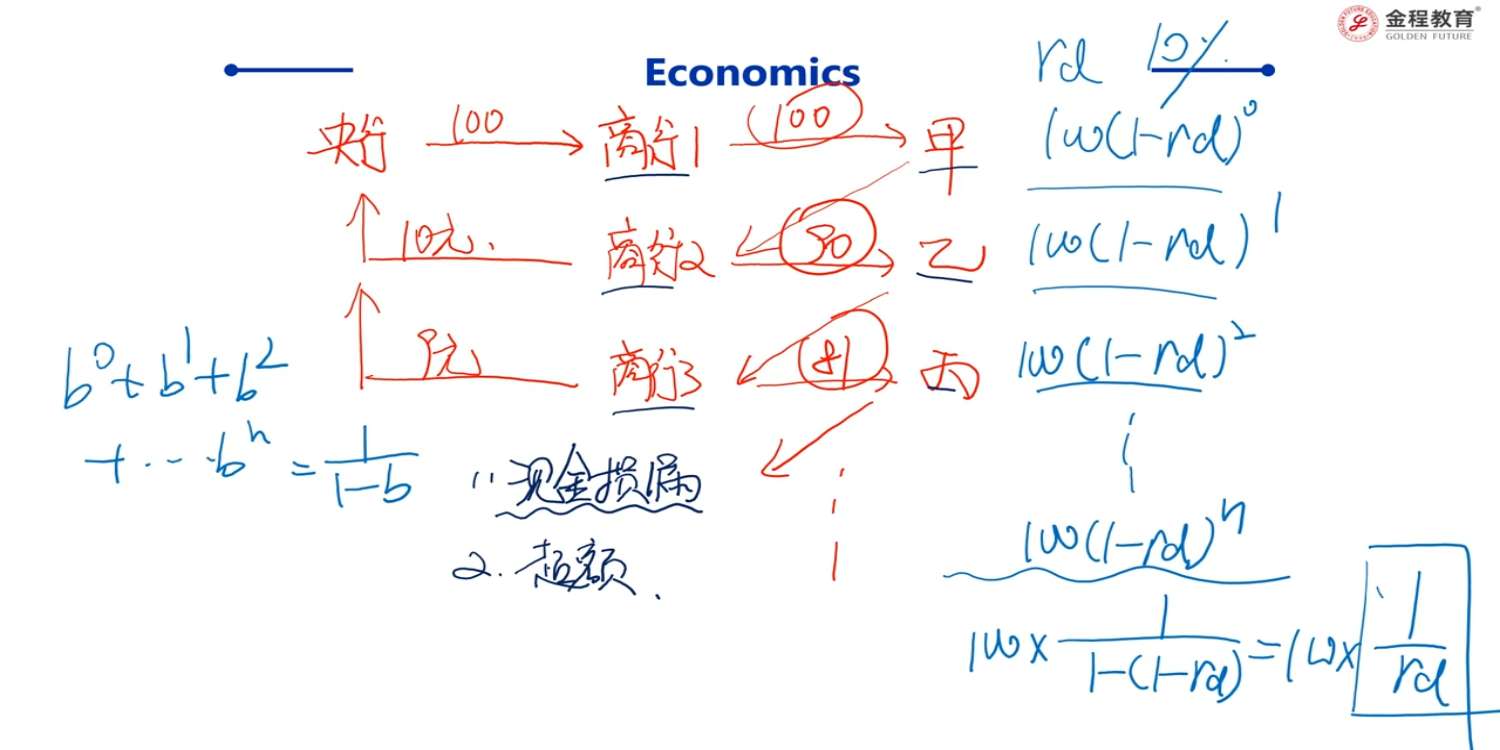 金程教育
GOLDEN FUTURE
Economics
rd 10%
央行 100 商行1 100 甲 100(1-rd)^0
10元. 商行2 90 乙 100(1-rd)^1
9元 商行3 81 丙 100(1-rd)^2
b^0+b^1+b^2
+...b^n = 1/(1-b)
1. 现金损漏
2. 超额.
100(1-rd)^n
100× 1/(1-(1-rd)) = 100× 1/rd